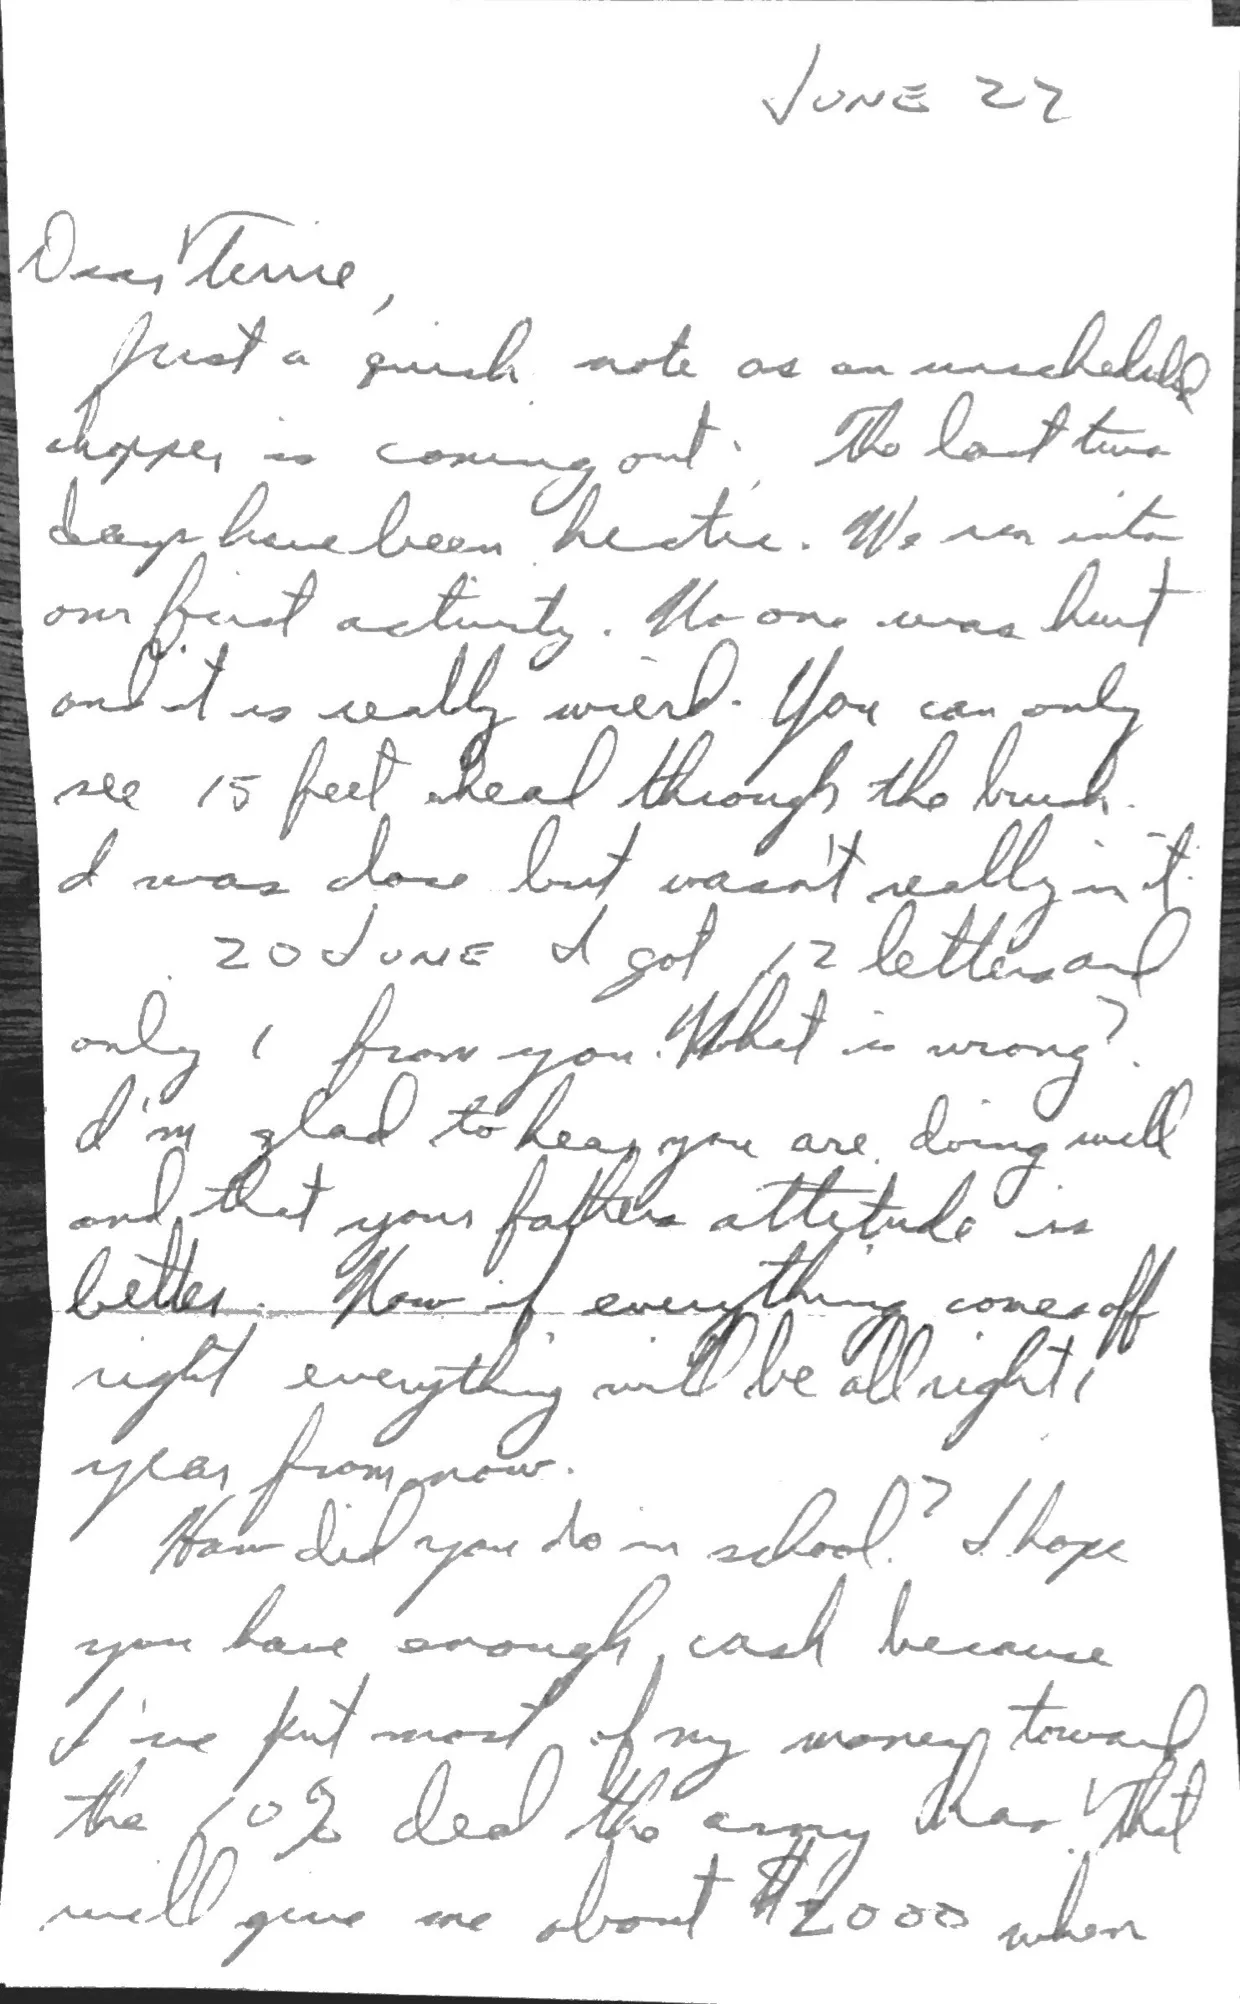 JUNE 22
Dear Terrie,
Just a quick note as an unscheduled
chopper is coming out. The last two
days have been hectic. We ran into
our first activity. No one was hurt
and it is really wierd. You can only
see 15 feet ahead through the brush.
I was close but wasn't really in it.
20 JUNE I got 12 letters and
only 1 from you. What is wrong?
I'm glad to hear you are doing well
and that your fathers attitude is
better. Now if everything comes off
right everything will be all right 1
year from now.
How did you do in school? I hope
you have enough cash because
I've put most of my money toward
the 10% deal the army has. That
will give me about $2000 when